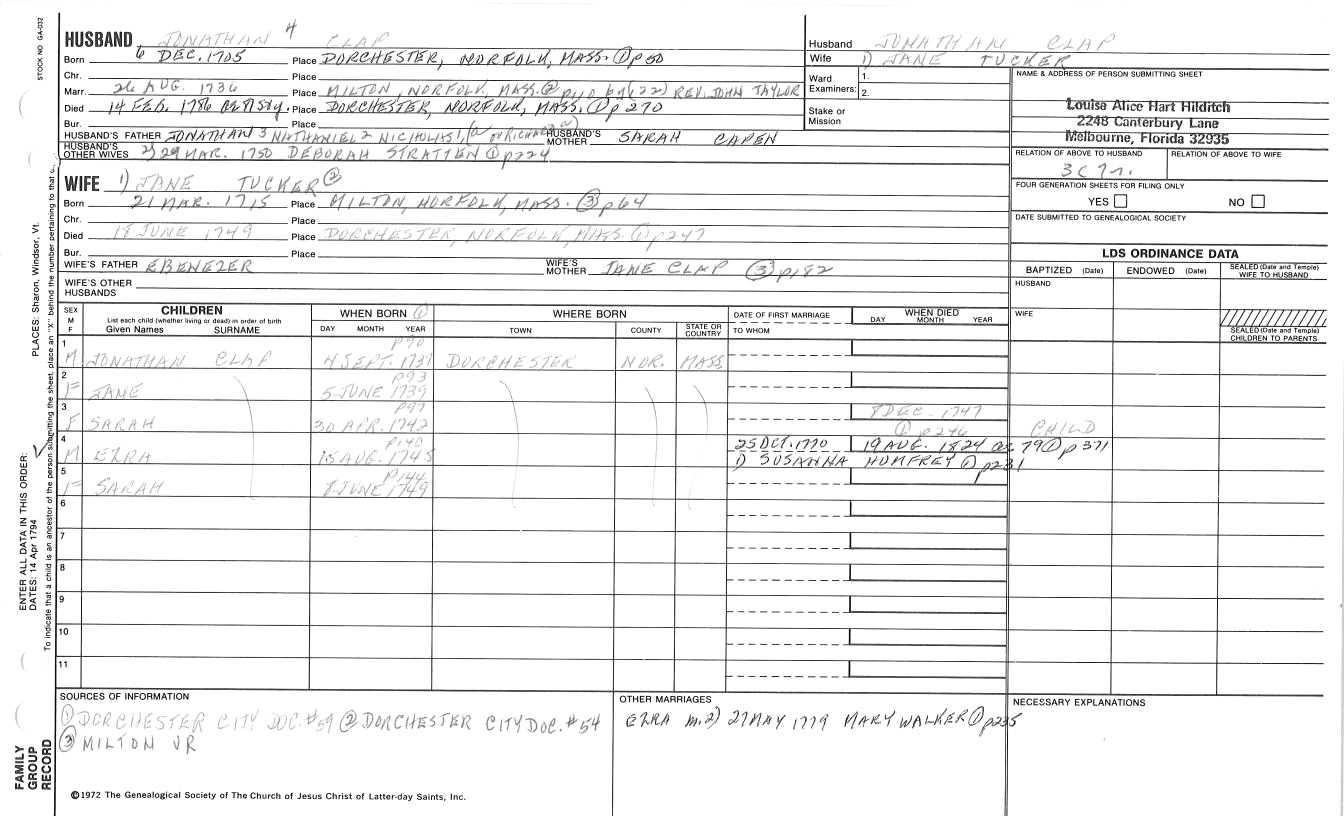 STOCK NO GA-032
HUSBAND JONATHAN 4 CLAP
Born 6 DEC. 1705 Place DORCHESTER, NORFOLK, MASS. ① p 50
Chr. Place
Marr. 26 AUG. 1736 Place MILTON, NORFOLK, MASS. ② p110 REV. JOHN TAYLOR
Died 14 FEB. 1786 Place DORCHESTER, NORFOLK, MASS. ① p 270
Bur. Place
HUSBAND'S FATHER JONATHAN 3 NATHANIEL 2 NICHOLAS 1, HUSBAND'S MOTHER SARAH CAPEN
HUSBAND'S OTHER WIVES 2) 29 MAR. 1750 DEBORAH STRATTEN ① p224
Husband JONATHAN CLAP
Wife 1) JANE TUCKER
Ward Examiners: 1.
2.
Stake or Mission
NAME & ADDRESS OF PERSON SUBMITTING SHEET
Louisa Alice Hart Hilditch
2248 Canterbury Lane
Melbourne, Florida 32935
RELATION OF ABOVE TO HUSBAND RELATION OF ABOVE TO WIFE
3C7r.
FOUR GENERATION SHEETS FOR FILING ONLY
YES NO
DATE SUBMITTED TO GENEALOGICAL SOCIETY
WIFE 1) JANE TUCKER ②
Born 21 MAR. 1715 Place MILTON, NORFOLK, MASS. ③ p64
Chr. Place
Died 18 JUNE 1749 Place DORCHESTER, NORFOLK, MASS. ① p247
Bur. Place
WIFE'S FATHER EBENEZER WIFE'S MOTHER JANE CLAP ③ p182
WIFE'S OTHER HUSBANDS
LDS ORDINANCE DATA
BAPTIZED (Date) ENDOWED (Date) SEALED (Date and Temple) WIFE TO HUSBAND
HUSBAND
WIFE
SEALED (Date and Temple) CHILDREN TO PARENTS
SEX M F
CHILDREN
List each child (whether living or dead) in order of birth
Given Names SURNAME
WHEN BORN ①
DAY MONTH YEAR
WHERE BORN
TOWN COUNTY STATE OR COUNTRY
DATE OF FIRST MARRIAGE
TO WHOM
WHEN DIED
DAY MONTH YEAR
1 p90
M JONATHAN CLAP 4 SEPT. 1737 DORCHESTER NOR. MASS
2 p93
F JANE 5 JUNE 1739
3 p97 8 DEC. 1747
F SARAH 30 APR. 1742 ① p246 CHILD
4 p140 25 OCT. 1770 19 AUG. 1824 ae 79 ① p 371
M EZRA 15 AUG. 1745 1) SUSANNA HUMFREY ① p231
5 p144
F SARAH 8 JUNE 1749
6
7
8
9
10
11
SOURCES OF INFORMATION
① DORCHESTER CITY DOC. #59 ② DORCHESTER CITY DOC. #54
③ MILTON VR
OTHER MARRIAGES
EZRA m. 2) 27 MAY 1779 MARY WALKER ① p235
NECESSARY EXPLANATIONS
©1972 The Genealogical Society of The Church of Jesus Christ of Latter-day Saints, Inc.
PLACES: Sharon, Windsor, Vt.
To indicate that a child is an ancestor of the person submitting the sheet, place an "X" behind the number pertaining to that
ENTER ALL DATA IN THIS ORDER:
DATES: 14 Apr 1794
FAMILY
GROUP
RECORD